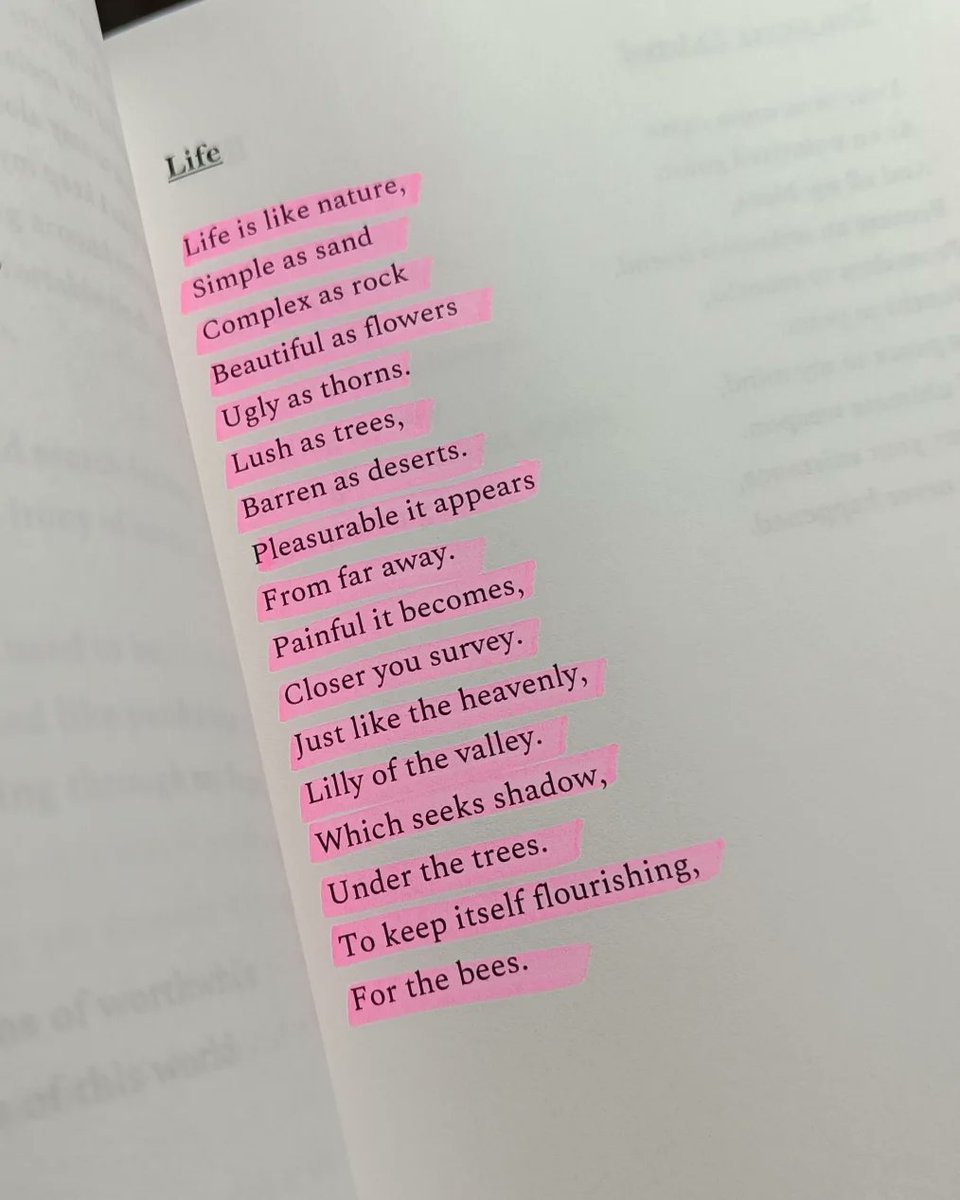 Life
Life is like nature,
Simple as sand
Complex as rock
Beautiful as flowers
Ugly as thorns.
Lush as trees,
Barren as deserts.
Pleasurable it appears
From far away.
Painful it becomes,
Closer you survey.
Just like the heavenly,
Lilly of the valley.
Which seeks shadow,
Under the trees.
To keep itself flourishing,
For the bees.